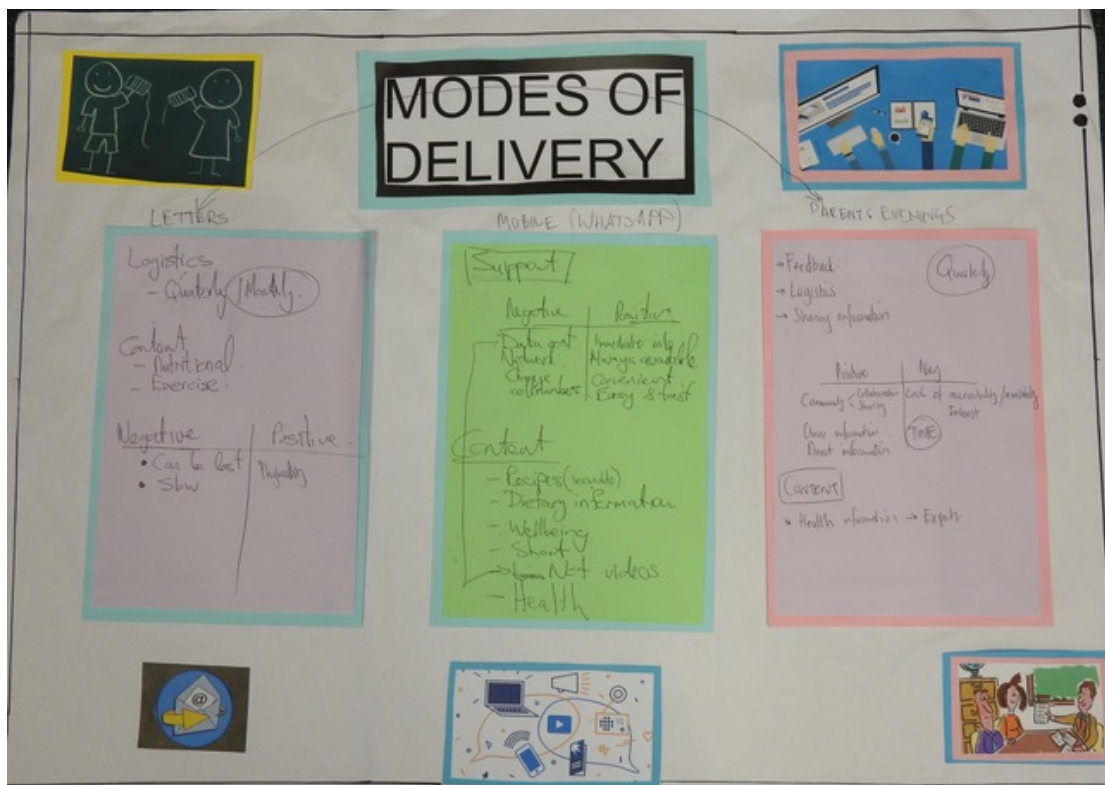 MODES OF
DELIVERY
LETTERS
Logistics
- Quarterly / Monthly.
Content
- Nutritional.
- Exercise.
Negative Positive.
• Can be lost
• Slow
MOBILE (WHATSAPP)
Support
Negative Positive
Data cost Immediate
Network Always available
Change Convenient
cell numbers Easy & fast
Content
- Recipes
- Dietary information
- Wellbeing
- Short
Not videos
- Health
PARENTS EVENINGS
→ Feedback.
→ Logistics
→ Sharing information
Positive Neg
Community Collaboration Lack of accessibility / availability
Sharing Interest
information TIME
Direct information
CONTENT
Health information → Experts.
@